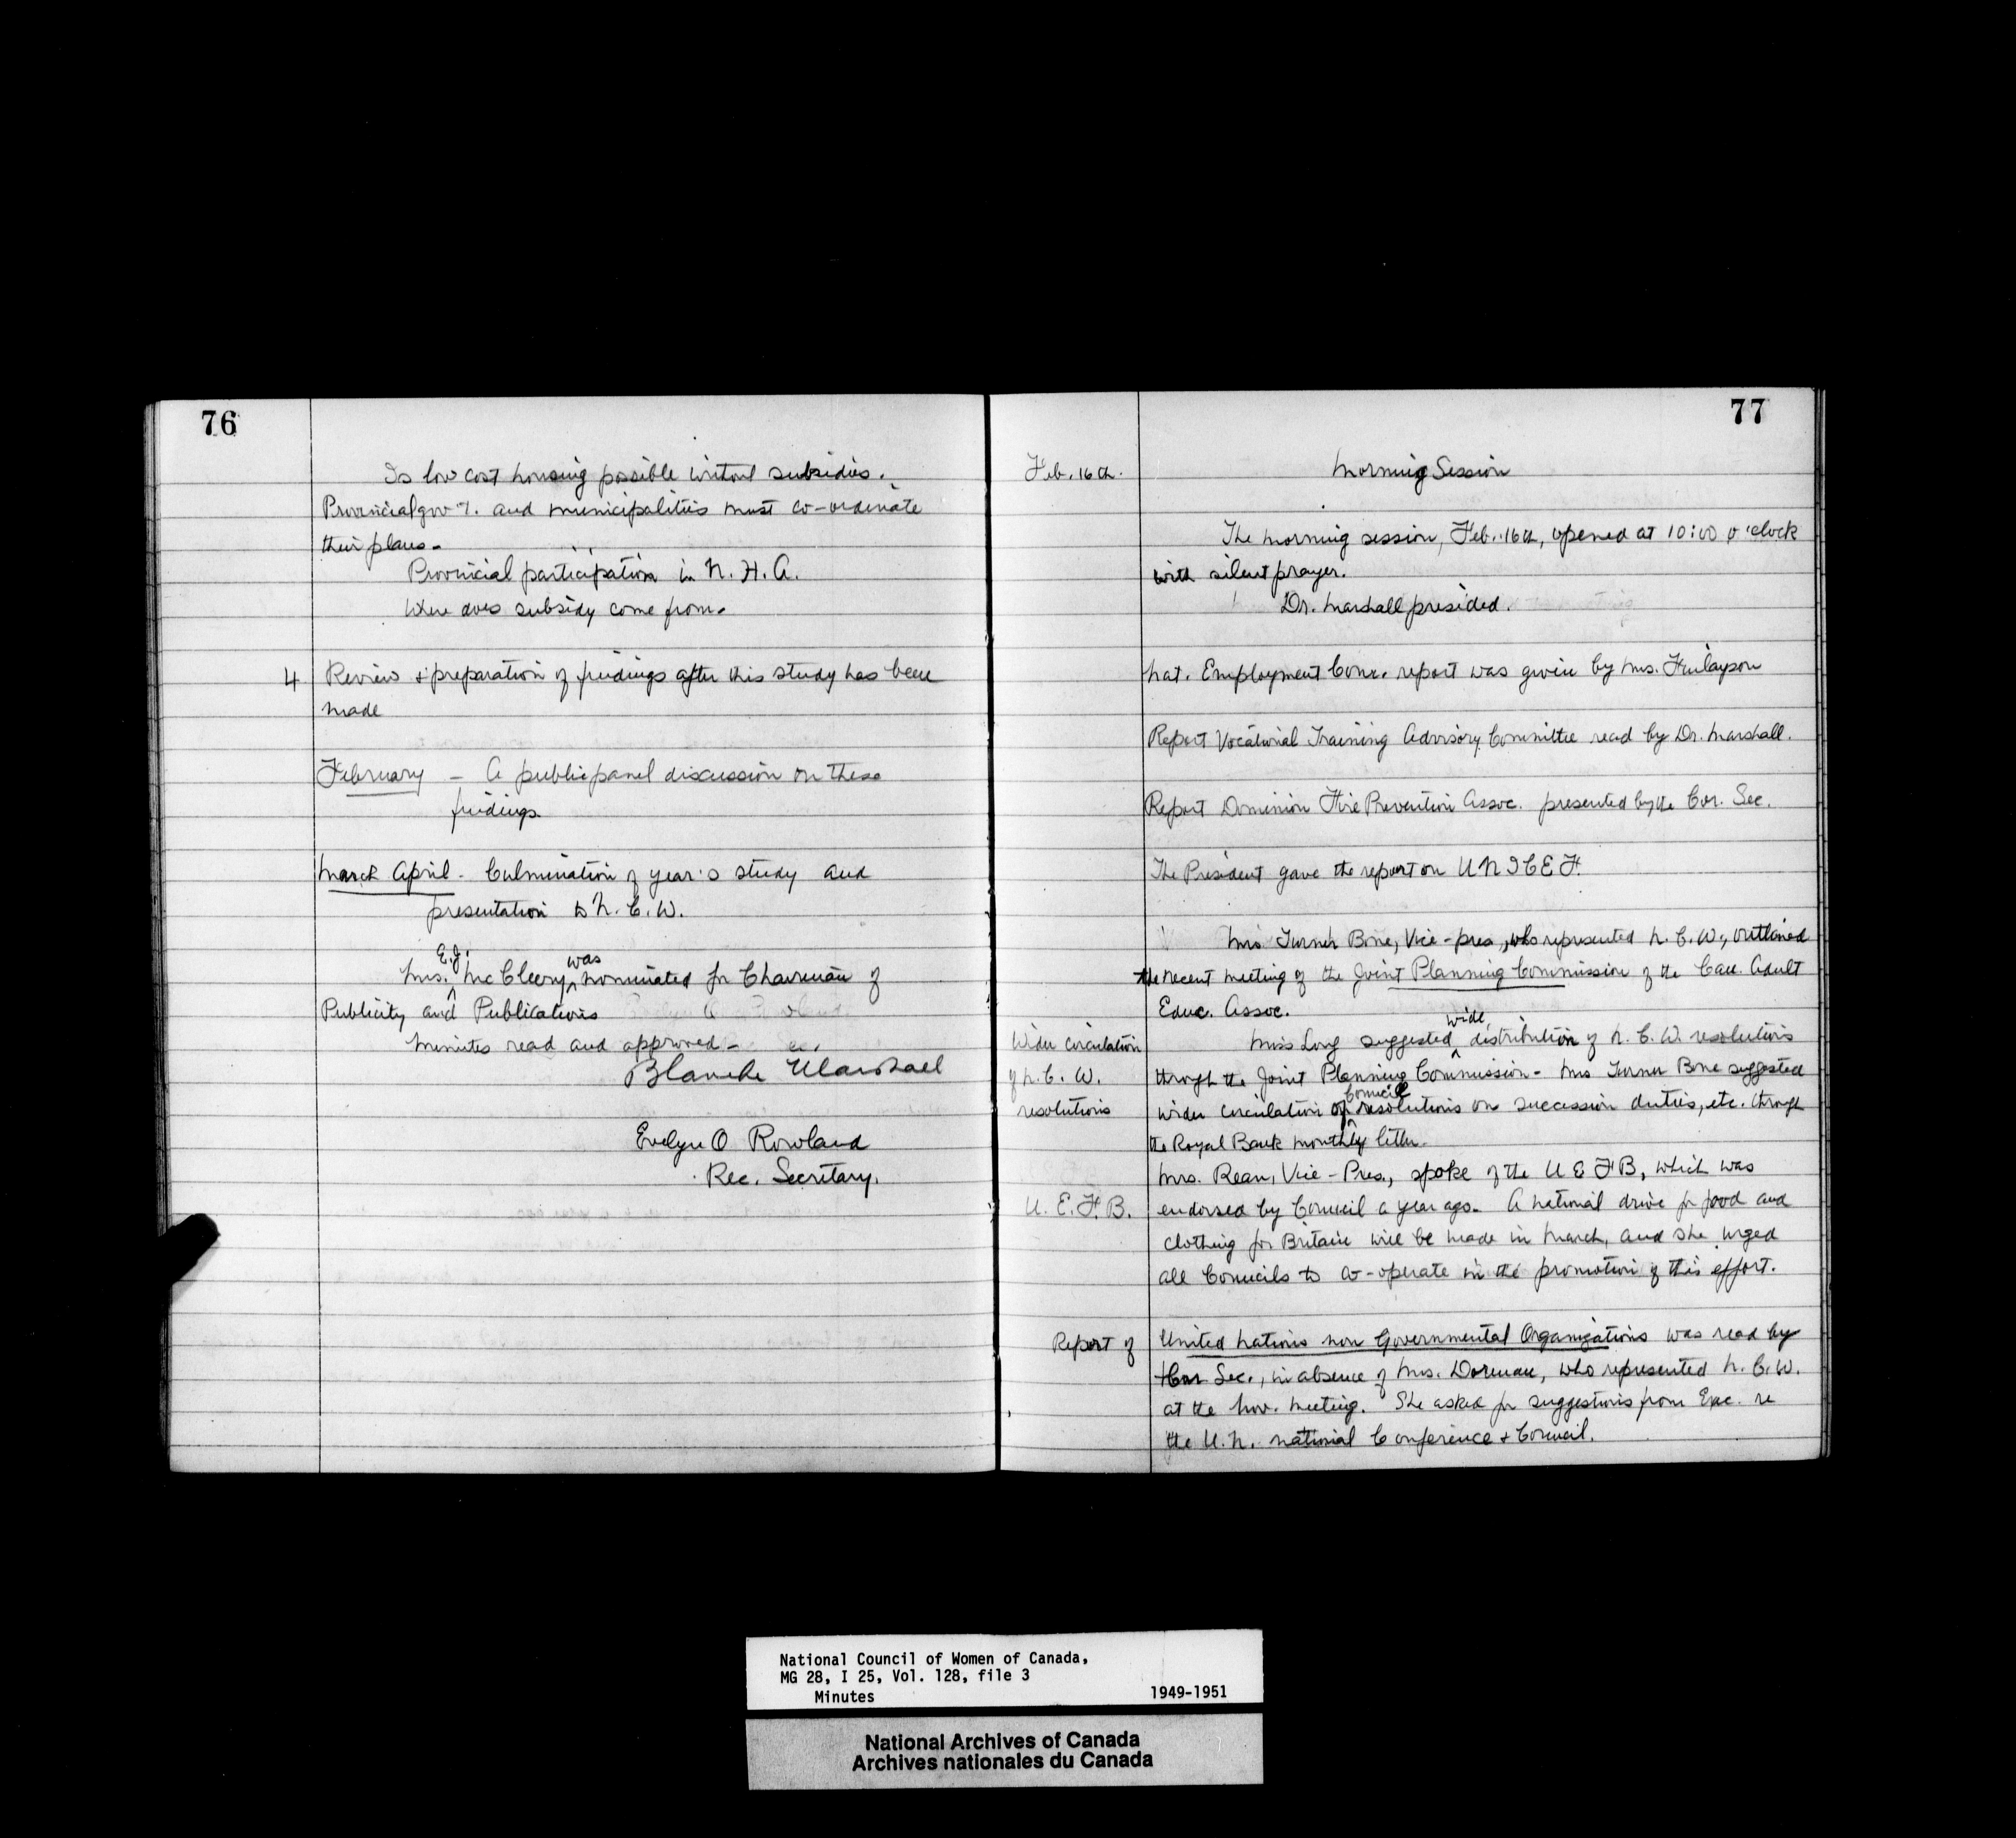 76
Is low cost housing possible without subsidies.
Provincial gov't. and municipalities must co-ordinate
their plans -
Provincial participation in N. H. A.
Where does subsidy come from.
4 Review & preparation of findings after this study has been
made
February - A public panel discussion on these
findings.
March April - Culmination of year's study and
presentation to N. C. W.
Mrs. E.J. McCleery was nominated for Chairman of
Publicity and Publications
Minutes read and approved -
Blanche Marshall
Evelyn O Rowland
Rec. Secretary.
77
Feb. 16th.
Morning Session
The morning session, Feb. 16th, opened at 10:00 o'clock
with silent prayer.
Dr. Marshall presided.
Nat. Employment Com. report was given by Mrs. Finlayson
Report Vocational Training Advisory Committee read by Dr. Marshall.
Report Dominion Fire Prevention Assoc. presented by the Cor. Sec.
The President gave the report on UNICEF.
Mrs Turner Bone, Vice-pres, who represented N. C. W., outlined
the recent meeting of the Joint Planning Commission of the Can. Adult
Educ. Assoc.
Wider circulation
of N. C. W.
resolutions
Miss Long suggested wide distribution of N. C. W. resolutions
through the Joint Planning Commission - Mrs Turner Bone suggested
wider circulation of Council resolutions on succession duties, etc. through
the Royal Bank monthly letter.
U. E. F. B.
Mrs. Rean, Vice-Pres., spoke of the U E F B, which was
endorsed by Council a year ago. A national drive for food and
clothing for Britain will be made in March, and she urged
all Councils to co-operate in the promotion of this effort.
Report of United Nations non Governmental Organizations was read by
Cor Sec., in absence of Mrs. Dorman, who represented N. C. W.
at the Nov. meeting. She asked for suggestions from Exec. re
the U. N. national Conference & Council.
National Council of Women of Canada,
MG 28, I 25, Vol. 128, file 3
Minutes 1949-1951
National Archives of Canada
Archives nationales du Canada